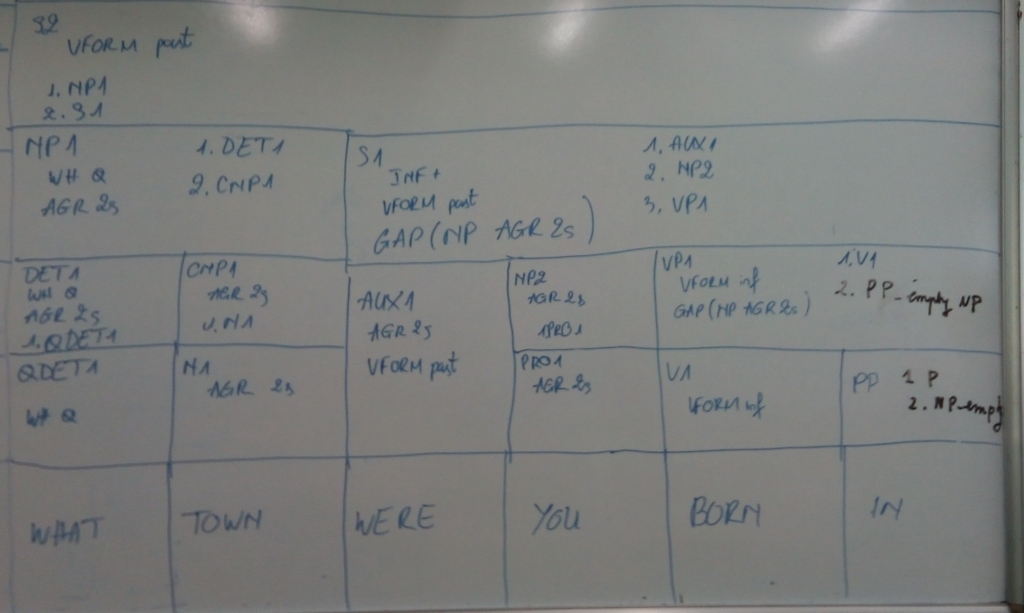 S2
VFORM past
1. NP1
2. S1
NP1
WH Q
AGR 2s
1. DET1
2. CNP1
S1
INF +
VFORM past
GAP (NP AGR 2s)
1. AUX1
2. NP2
3. VP1
DET1
WH Q
AGR 2s
1. QDET1
CNP1
AGR 2s
1. N1
AUX1
AGR 2s
VFORM past
NP2
AGR 2s
1PRO1
VP1
VFORM inf
GAP (NP AGR 2s)
1. V1
2. PP_empty NP
QDET1
WH Q
N1
AGR 2s
PRO1
AGR 2s
V1
VFORM inf
PP
1 P
2. NP-empty
WHAT TOWN WERE YOU BORN IN